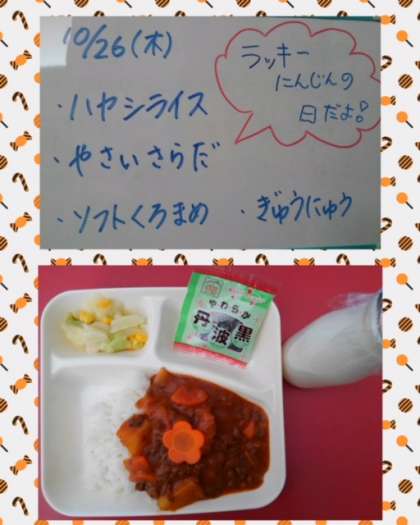 10/26(木)
ラッキー
にんじんの
日だよ!
・ハヤシライス
・やさいさらだ
・ソフトくろまめ ・ぎゅうにゅう
やわらか
丹波黒